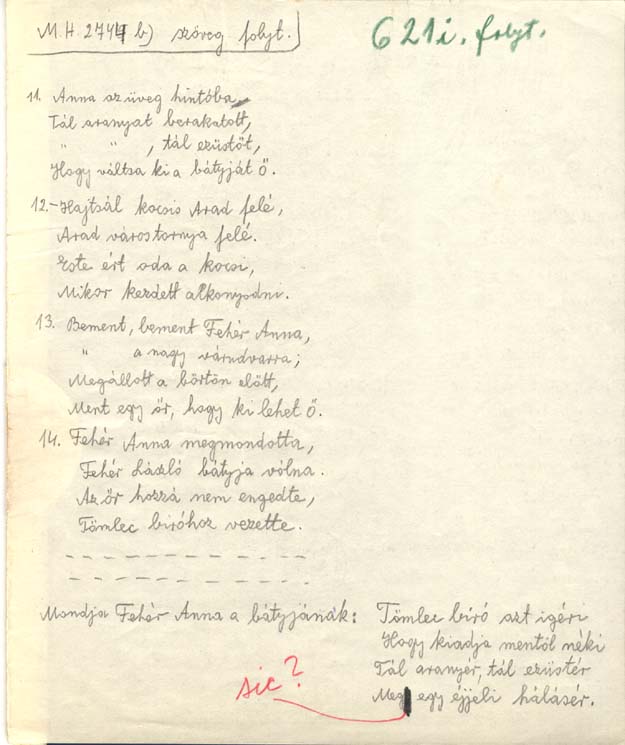 M.H. 2744 b) szöveg folyt.
621 i. folyt.
11. Anna az üveg hintóba,
Tál aranyat berakatott,
" " , tál ezüstöt,
Hogy váltsa ki a bátyját Ő.
12. – Hajtsál kocsis Arad felé,
Arad város tornya felé.
Este ért oda a kocsi,
Mikor kezdett alkonyodni.
13. Bement, bement Fehér Anna,
" a nagy várudvarra;
Megállott a börtön előtt,
Ment egy őr, hogy ki lehet Ő.
14. Fehér Anna megmondotta,
Fehér László bátyja vólna.
Az őr hozzá nem engedte,
Tömlec biróhoz vezette.
— — — — — — — — — —
— — — — — — — — — —
Mondja Fehér Anna a bátyjának: Tömlec biró azt igéri
Hogy kiadja mentől néki
Tál aranyér, tál ezüstér
Meg egy éjjeli hálásér.
sic?